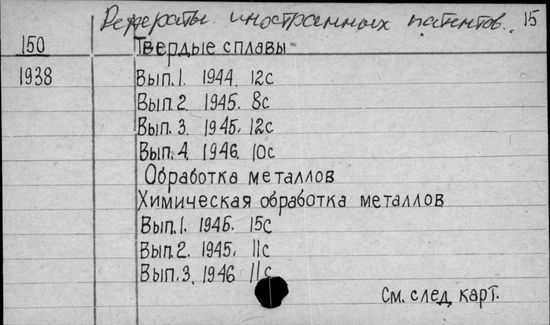 Рефераты иностранных патентов. 15
150 Твердые сплавы
1938 Вып.1. 1944. 12с
Вып.2. 1945. 8с
Вып.3. 1945. 12с
Вып.4. 1946. 10с
Обработка металлов
Химическая обработка металлов
Вып.1. 1945. 15с
Вып.2. 1945. 11с
Вып.3. 1946 11с
См. след. карт.